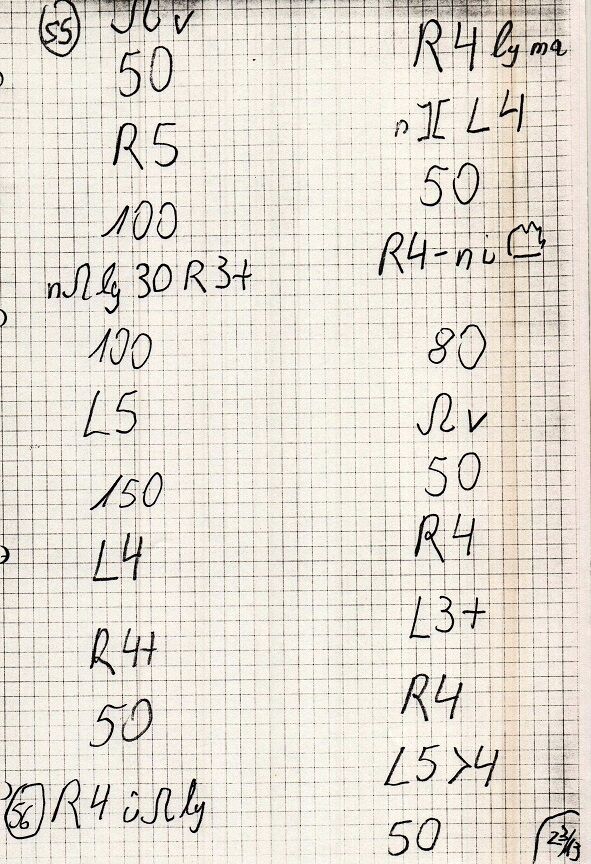 55 Ω v
50
R5
100
nΩ ly 30 R3+
100
L5
150
L4
R4+
50
56 R4 i Ω ly
R4 ly ma
n ][ L4
50
R4-n i
80
Ω v
50
R4
L3+
R4
L5>4
50